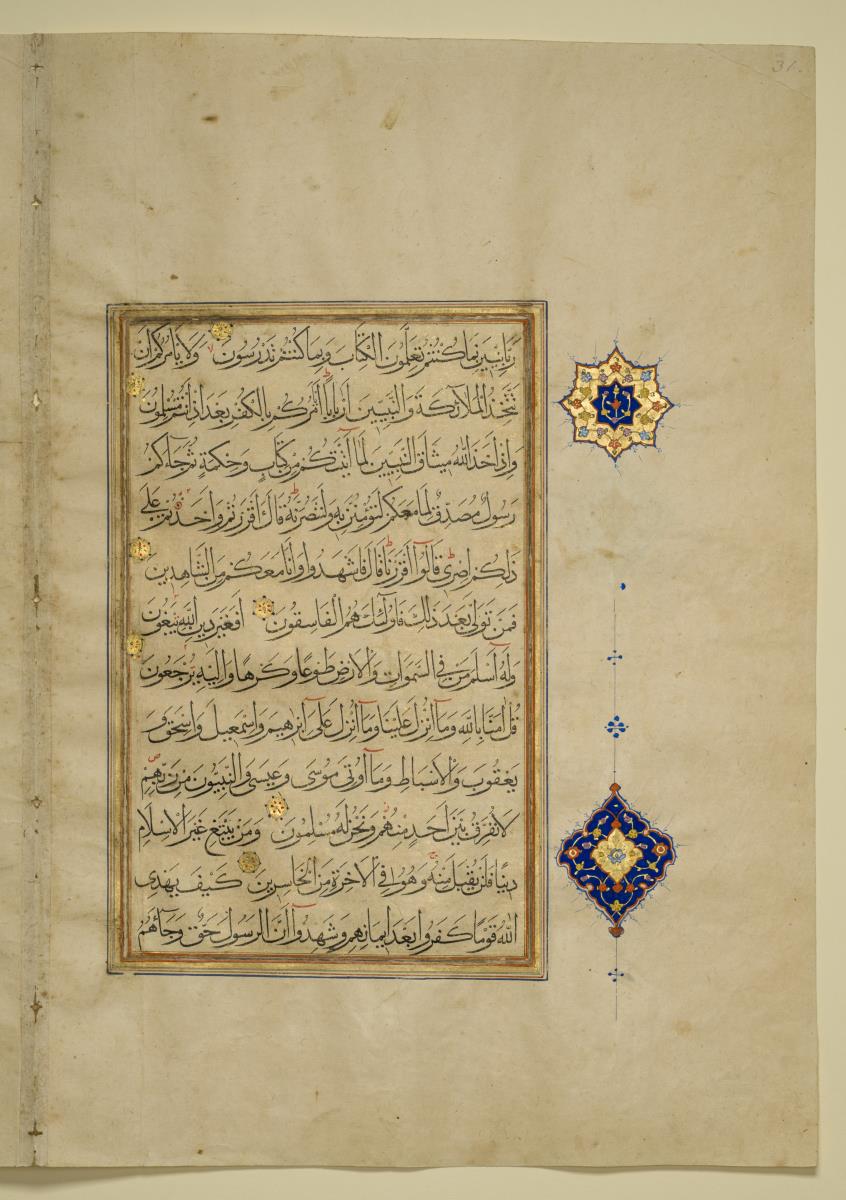 31.
رَبَّانِيِّينَ بِمَا كُنْتُمْ تُعَلِّمُونَ الْكِتَابَ وَبِمَا كُنْتُمْ تَدْرُسُونَ وَلَا يَأْمُرَكُمْ أَنْ
تَتَّخِذُوا الْمَلَائِكَةَ وَالنَّبِيِّينَ أَرْبَابًا أَيَأْمُرُكُمْ بِالْكُفْرِ بَعْدَ إِذْ أَنْتُمْ مُسْلِمُونَ
وَإِذْ أَخَذَ اللَّهُ مِيثَاقَ النَّبِيِّينَ لَمَا آتَيْتُكُمْ مِنْ كِتَابٍ وَحِكْمَةٍ ثُمَّ جَاءَكُمْ
رَسُولٌ مُصَدِّقٌ لِمَا مَعَكُمْ لَتُؤْمِنُنَّ بِهِ وَلَتَنْصُرُنَّهُ قَالَ أَأَقْرَرْتُمْ وَأَخَذْتُمْ عَلَى
ذَلِكُمْ إِصْرِي قَالُوا أَقْرَرْنَا قَالَ فَاشْهَدُوا وَأَنَا مَعَكُمْ مِنَ الشَّاهِدِينَ
فَمَنْ تَوَلَّى بَعْدَ ذَلِكَ فَأُولَئِكَ هُمُ الْفَاسِقُونَ أَفَغَيْرَ دِينِ اللَّهِ يَبْغُونَ
وَلَهُ أَسْلَمَ مَنْ فِي السَّمَوَاتِ وَالْأَرْضِ طَوْعًا وَكَرْهًا وَإِلَيْهِ يُرْجَعُونَ
قُلْ آمَنَّا بِاللَّهِ وَمَا أُنْزِلَ عَلَيْنَا وَمَا أُنْزِلَ عَلَى إِبْرَهِيمَ وَإِسْمَعِيلَ وَإِسْحَقَ وَ
يَعْقُوبَ وَالْأَسْبَاطِ وَمَا أُوتِيَ مُوسَى وَعِيسَى وَالنَّبِيُّونَ مِنْ رَبِّهِمْ
لَا نُفَرِّقُ بَيْنَ أَحَدٍ مِنْهُمْ وَنَحْنُ لَهُ مُسْلِمُونَ وَمَنْ يَبْتَغِ غَيْرَ الْإِسْلَامِ
دِينًا فَلَنْ يُقْبَلَ مِنْهُ وَهُوَ فِي الْآخِرَةِ مِنَ الْخَاسِرِينَ كَيْفَ يَهْدِي
اللَّهُ قَوْمًا كَفَرُوا بَعْدَ إِيمَانِهِمْ وَشَهِدُوا أَنَّ الرَّسُولَ حَقٌّ وَجَاءَهُمُ